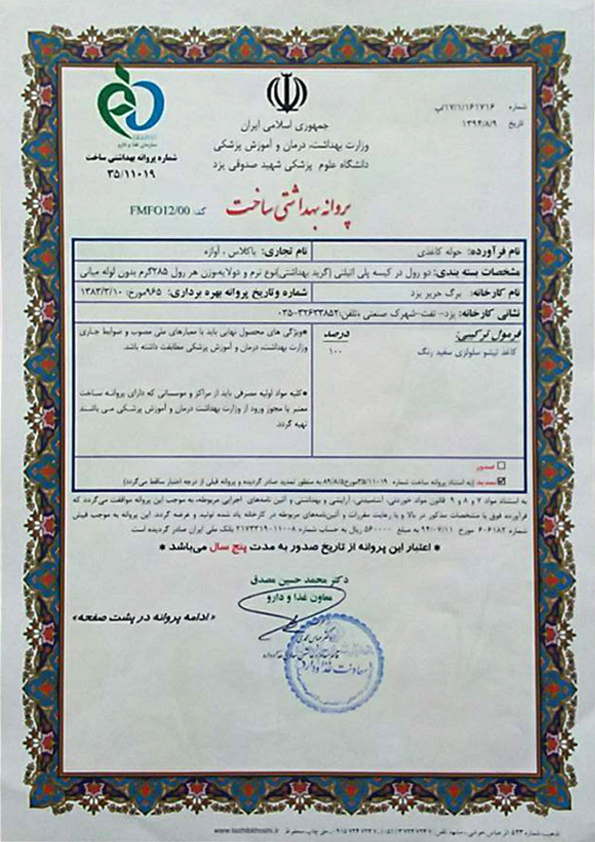 شماره ۱۷/۱/۱۶۱۷۱۶/پ
تاریخ ۱۳۹۴/۸/۹
جمهوری اسلامی ایران
وزارت بهداشت، درمان و آموزش پزشکی
دانشگاه علوم پزشکی شهید صدوقی یزد
سازمان غذا و دارو
شماره پروانه بهداشتی ساخت
۳۵/۱۱۰۱۹
پروانه بهداشتی ساخت
کد: FMFO12/00
نام فرآورده: حوله کاغذی
نام تجاری: باکلاس ، آوازه
مشخصات بسته بندی: دو رول در کیسه پلی اتیلنی (گرید بهداشتی)نوع نرم و دولایه-وزن هر رول ۲۸۵گرم بدون لوله میانی
نام کارخانه: برگ حریر یزد
شماره وتاریخ پروانه بهره برداری: ۹۶۵مورخ: ۱۳۸۳/۳/۱۰
نشانی کارخانه: یزد- تفت-شهرک صنعتی ،تلفن:۳۲۶۳۳۸۵۲-۰۳۵
فرمول ترکیبی: درصد
کاغذ تیشو سلولزی سفید رنگ ۱۰۰
●ویژگی های محصول نهایی باید با معیارهای ملی مصوب و ضوابط جاری
وزارت بهداشت، درمان و آموزش پزشکی مطابقت داشته باشد.
●کلیه مواد اولیه مصرفی باید از مراکز و موسساتی که دارای پروانه ساخت
معتبر یا مجوز ورود از وزارت بهداشت درمان و آموزش پزشکی می باشند
تهیه گردد.
صدور
تمدید (به استناد پروانه ساخت شماره ۳۵/۱۱۰۱۹مورخ۸۹/۸/۵ به منظور تمدید صادر گردیده و پروانه قبلی از درجه اعتبار ساقط می‌گردد)
به استناد مواد ۷ و ۸ و ۹ قانون مواد خوردنی، آشامیدنی، آرایشی و بهداشتی و آئین نامه‌های اجرایی مربوطه، به موجب این پروانه موافقت می‌گردد که
فرآورده فوق با مشخصات مذکور در بالا و با رعایت مقررات و آئین‌نامه‌های مربوطه در کارخانه یاد شده تولید و عرضه گردد. این پروانه به موجب فیش
شماره ۶۰۶۱۸۲ مورخ ۹۴/۰۷/۱۱ به مبلغ ۵۶۰۰۰۰ ریال به حساب شماره ۲۱۷۳۳۱۹۰۱۱۰۰۸ بانک ملی ایران صادر گردیده است
* اعتبار این پروانه از تاریخ صدور به مدت پنج سال می‌باشد *
دکتر محمد حسین مصدق
معاون غذا و دارو
«ادامه پروانه در پشت صفحه»
معاونت غذا و دارو
www.tazhibkhoshi.ir